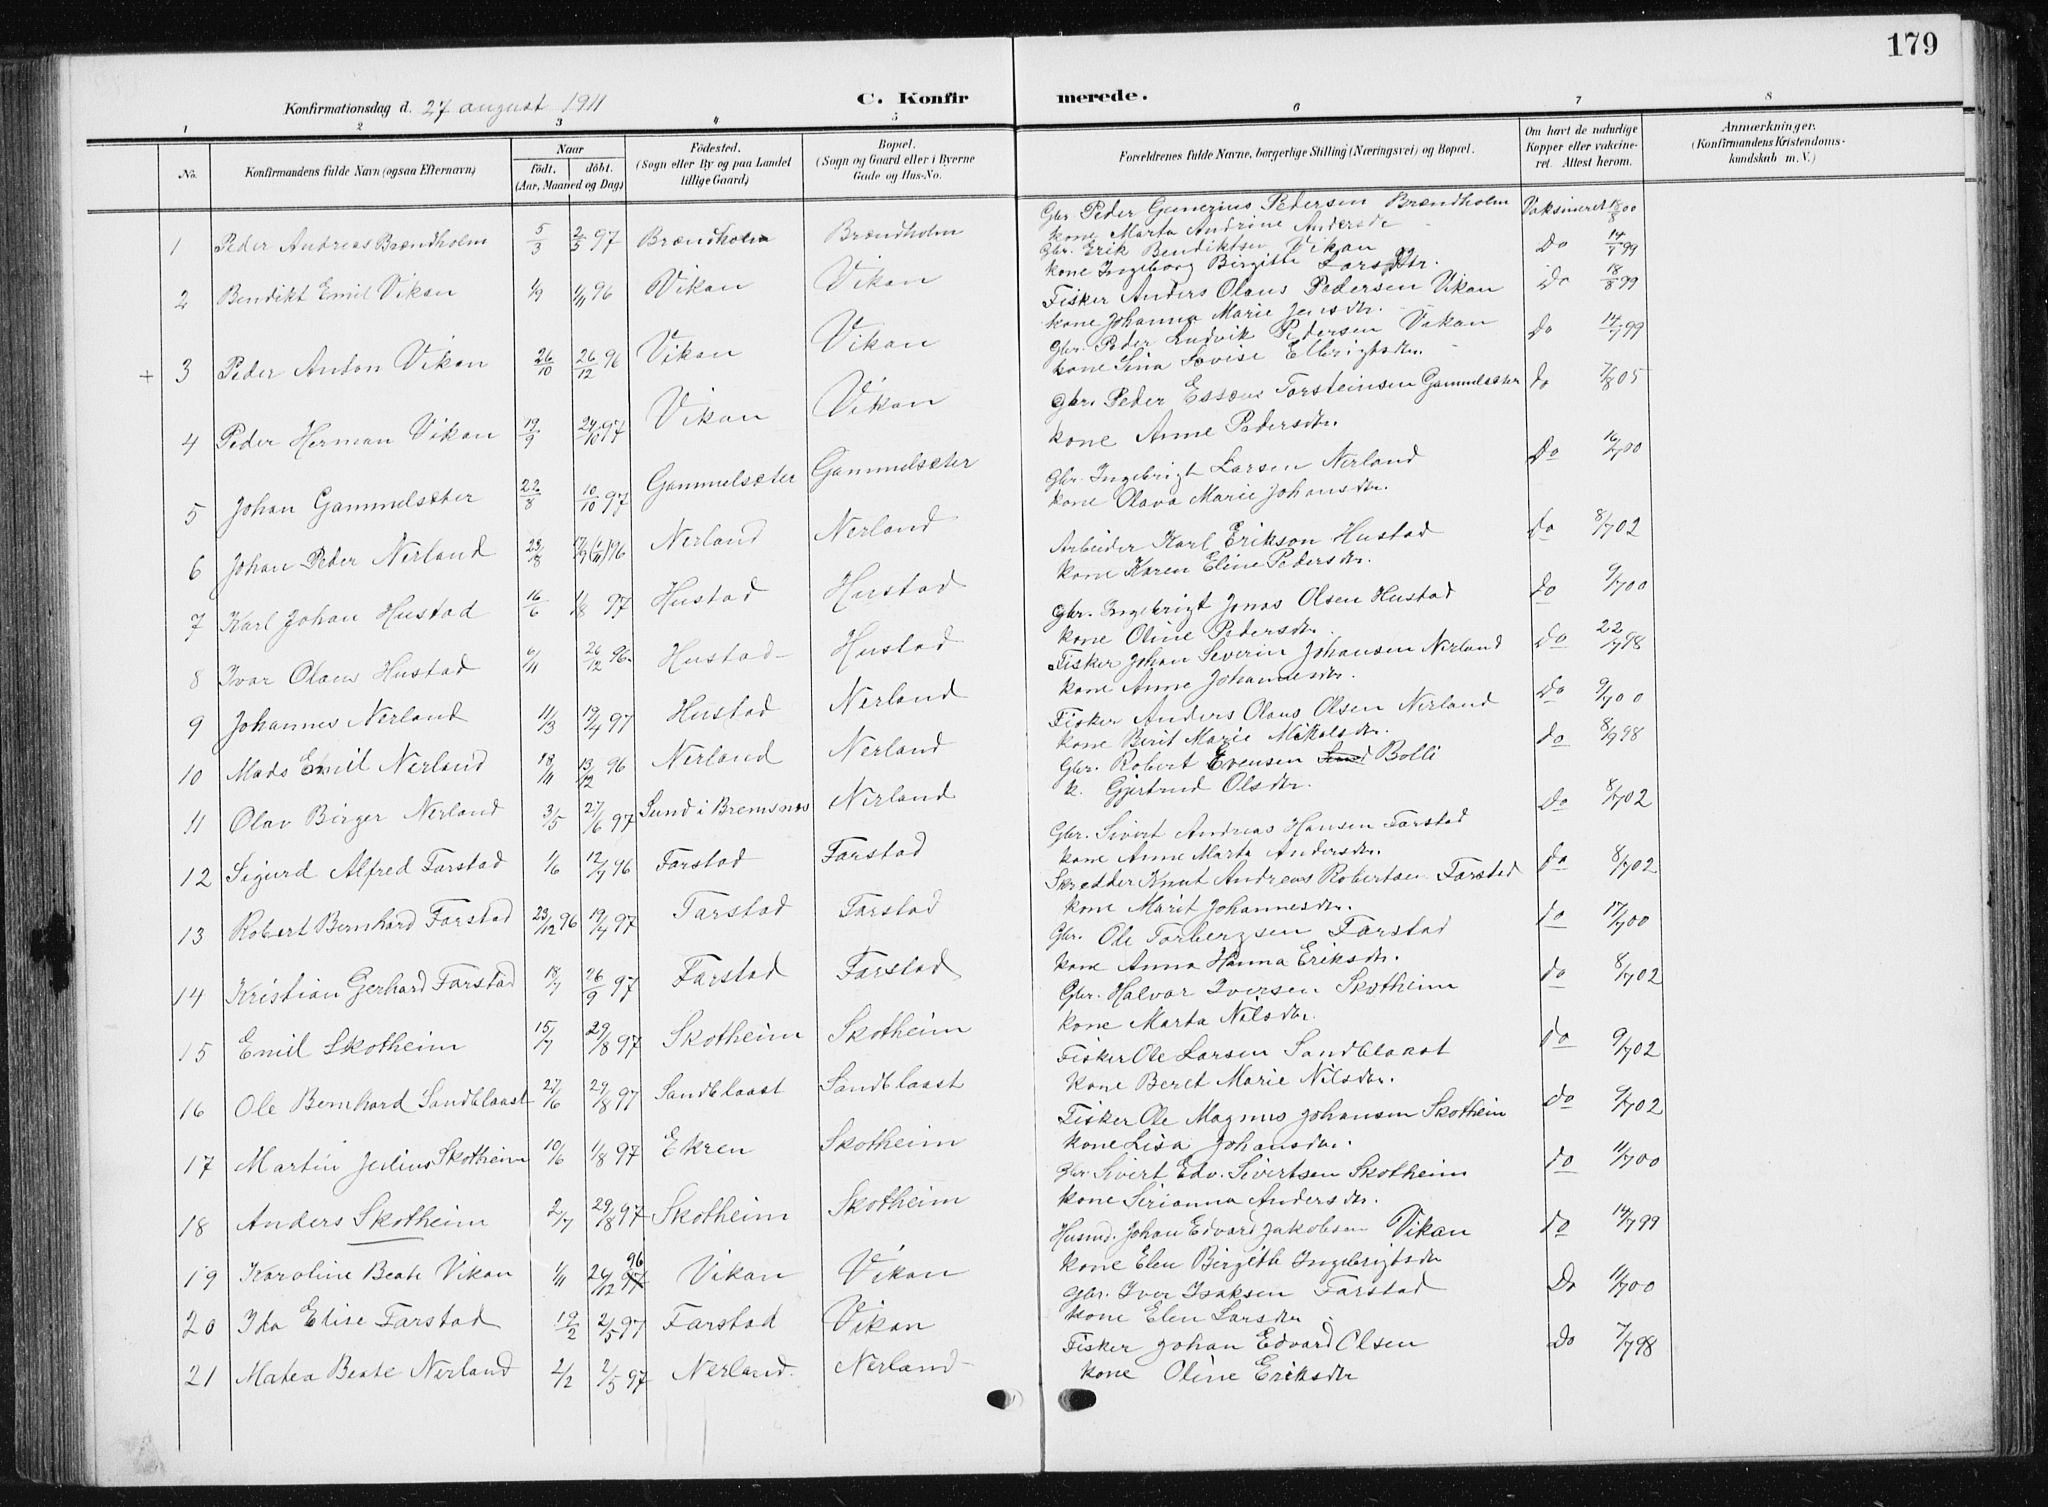 179
Konfirmationsdag d. 27 august 1911
C. Konfirmerede.
1 2 3 4 5 6 7 8
No. Konfirmandens fulde Navn (ogsaa Efternavn) Naar födt. döbt. (Aar, Maaned og Dag) Födested. (Sogn eller By og paa Landet tillige Gaard) Bopæl. (Sogn og Gaard eller i Byerne Gade og Hus-No. Forældrenes fulde Navne, borgerlige Stilling (Næringsvei) og Bopæl. Om havt de naturlige Kopper eller vakcineret. Attest herom. Anmærkninger. (Konfirmandens Kristendomskundskab m. V.)
1 Peder Andreas Brændholm 5/3 2/5 97 Brændholm Brændholm Gbr. Peder Gunerius Pedersen Brændholm Vaksineret 00
kone Marta Andrine Andersdr
2 Bendikt Emil Vikan 1/9 1/11 96 Vikan Vikan Gbr. Erik Bendiktsen Vikan Do 14/7 99
kone Ingeborg Birgitte Larsdtr.
+ 3 Peder Anton Vikan 26/10 26/12 96 Vikan Vikan Fisker Anders Olaus Pedersen Vikan Do 18/8 99
kone Johanna Marie Jensdtr.
4 Peder Herman Vikan 19/9 24/10 97 Vikan Vikan Gbr. Peder Ludvik Pedersen Vikan Do 14/7 99
kone Sina Lovise Elbrigtsdtr.
5 Johan Gammelsæter 22/8 10/10 97 Gammelsæter Gammelsæter Gbr. Peder Essæus Torsteinsen Gammelsæter do 7/8 05
kone Anne Pedersdtr.
6 Johan Peder Nerland 23/8 96 Nerland Nerland Gbr. Ingebrigt Larsen Nerland Do 16/7 00
kone Olava Marie Johansdtr.
7 Karl Johan Hustad 16/6 1/8 97 Hustad Hustad Arbeider Karl Erikson Hustad do 8/7 02
kone Karen Eline Pedersdtr.
8 Ivar Olaus Hustad 6/11 26/12 96 Hustad Hustad Gbr. Ingebrigt Jonas Olsen Hustad do 9/7 00
kone Oline Pedersdtr.
9 Johannes Nerland 11/3 19/4 97 Hustad Nerland Fisker Johan Severin Johansen Nerland do 22/7 98
kone Anne Johannesdtr.
10 Mads Emil Nerland 18/11 13/12 96 Nerland Nerland Fisker Anders Olaus Olsen Nerland Do 9/7 00
kone Berit Marie Mikalsdtr.
11 Olav Birger Nerland 3/5 27/6 97 Sund i Bremsnes Nerland Gbr. Robert Evensen Sund Bolli do 8/9 98
k. Gjertrud Olsdtr.
12 Sigurd Alfred Farstad 1/6 12/7 96 Farstad Farstad Gbr. Sivert Andreas Hansen Farstad Do 8/7 02
kone Anne Marta Andersdtr.
13 Robert Bernhard Farstad 23/12 96 19/4 97 Farstad Farstad Skredder Knut Andreas Robertsen Farstad do 8/7 02
kone Marit Johannesdtr.
14 Kristian Gerhard Farstad 18/7 26/9 97 Farstad Farstad Gbr. Ole Torbergsen Farstad do 17/7 00
kone Anna Hanna Eriksdtr.
15 Emil Skotheim 15/7 29/8 97 Skotheim Skotheim Gbr. Halvar Iversen Skotheim do 8/7 02
kone Marta Nilsdtr.
16 Ole Bernhard Sandblaast 27/6 29/8 97 Sandblaast Sandblaast Fisker Ole Larsen Sandblaast do 9/7 02
kone Beret Marie Nilsdtr.
17 Martin Julius Skotheim 10/6 1/8 97 Ekren Skotheim Fisker Ole Magnus Johansen Skotheim do 9/7 02
kone Lisa Johansdtr.
18 Anders Skotheim 2/7 29/8 97 Skotheim Skotheim Gbr. Sivert Edv. Sivertsen Skotheim do 11/7 00
kone Sirianna Andersdtr.
19 Karoline Beate Vikan 1/11 26/12 97 96 Vikan Vikan Husmd. Johan Edvard Jakobsen Vikan do 14/7 99
kone Elen Birgitte Ingebrigtsdtr
20 Ida Elise Farstad 19/2 2/5 97 Farstad Vikan Gbr. Iver Isaksen Farstad Do 11/7 00
kone Elen Larsdtr
21 Matea Beate Nerland 2/2 2/5 97 Nerland Nerland Fisker Johan Edvard Olsen Do 7/7 98
kone Oline Eriksdtr